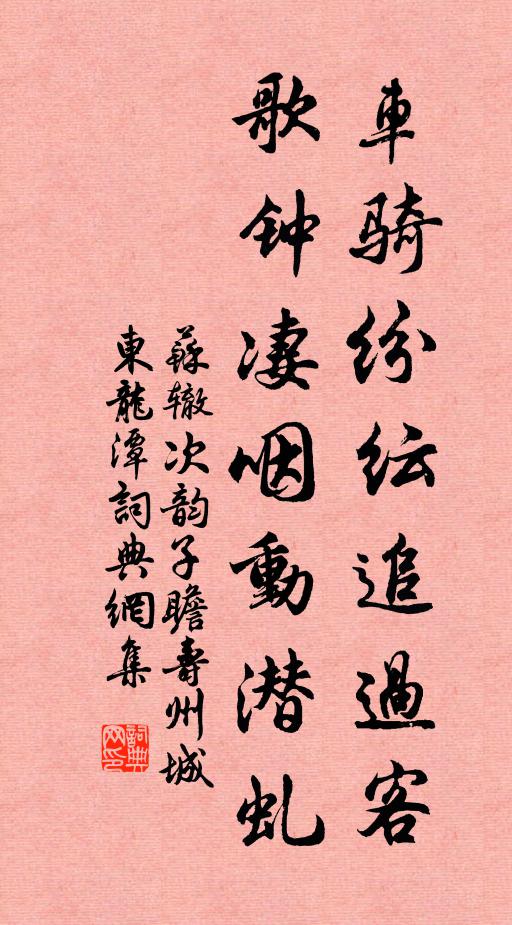 車骑纷纭追過客
歌钟凄咽動潜虬
蘇辙次韵子瞻壽州城
東龍潭詞典網集
詞典网印